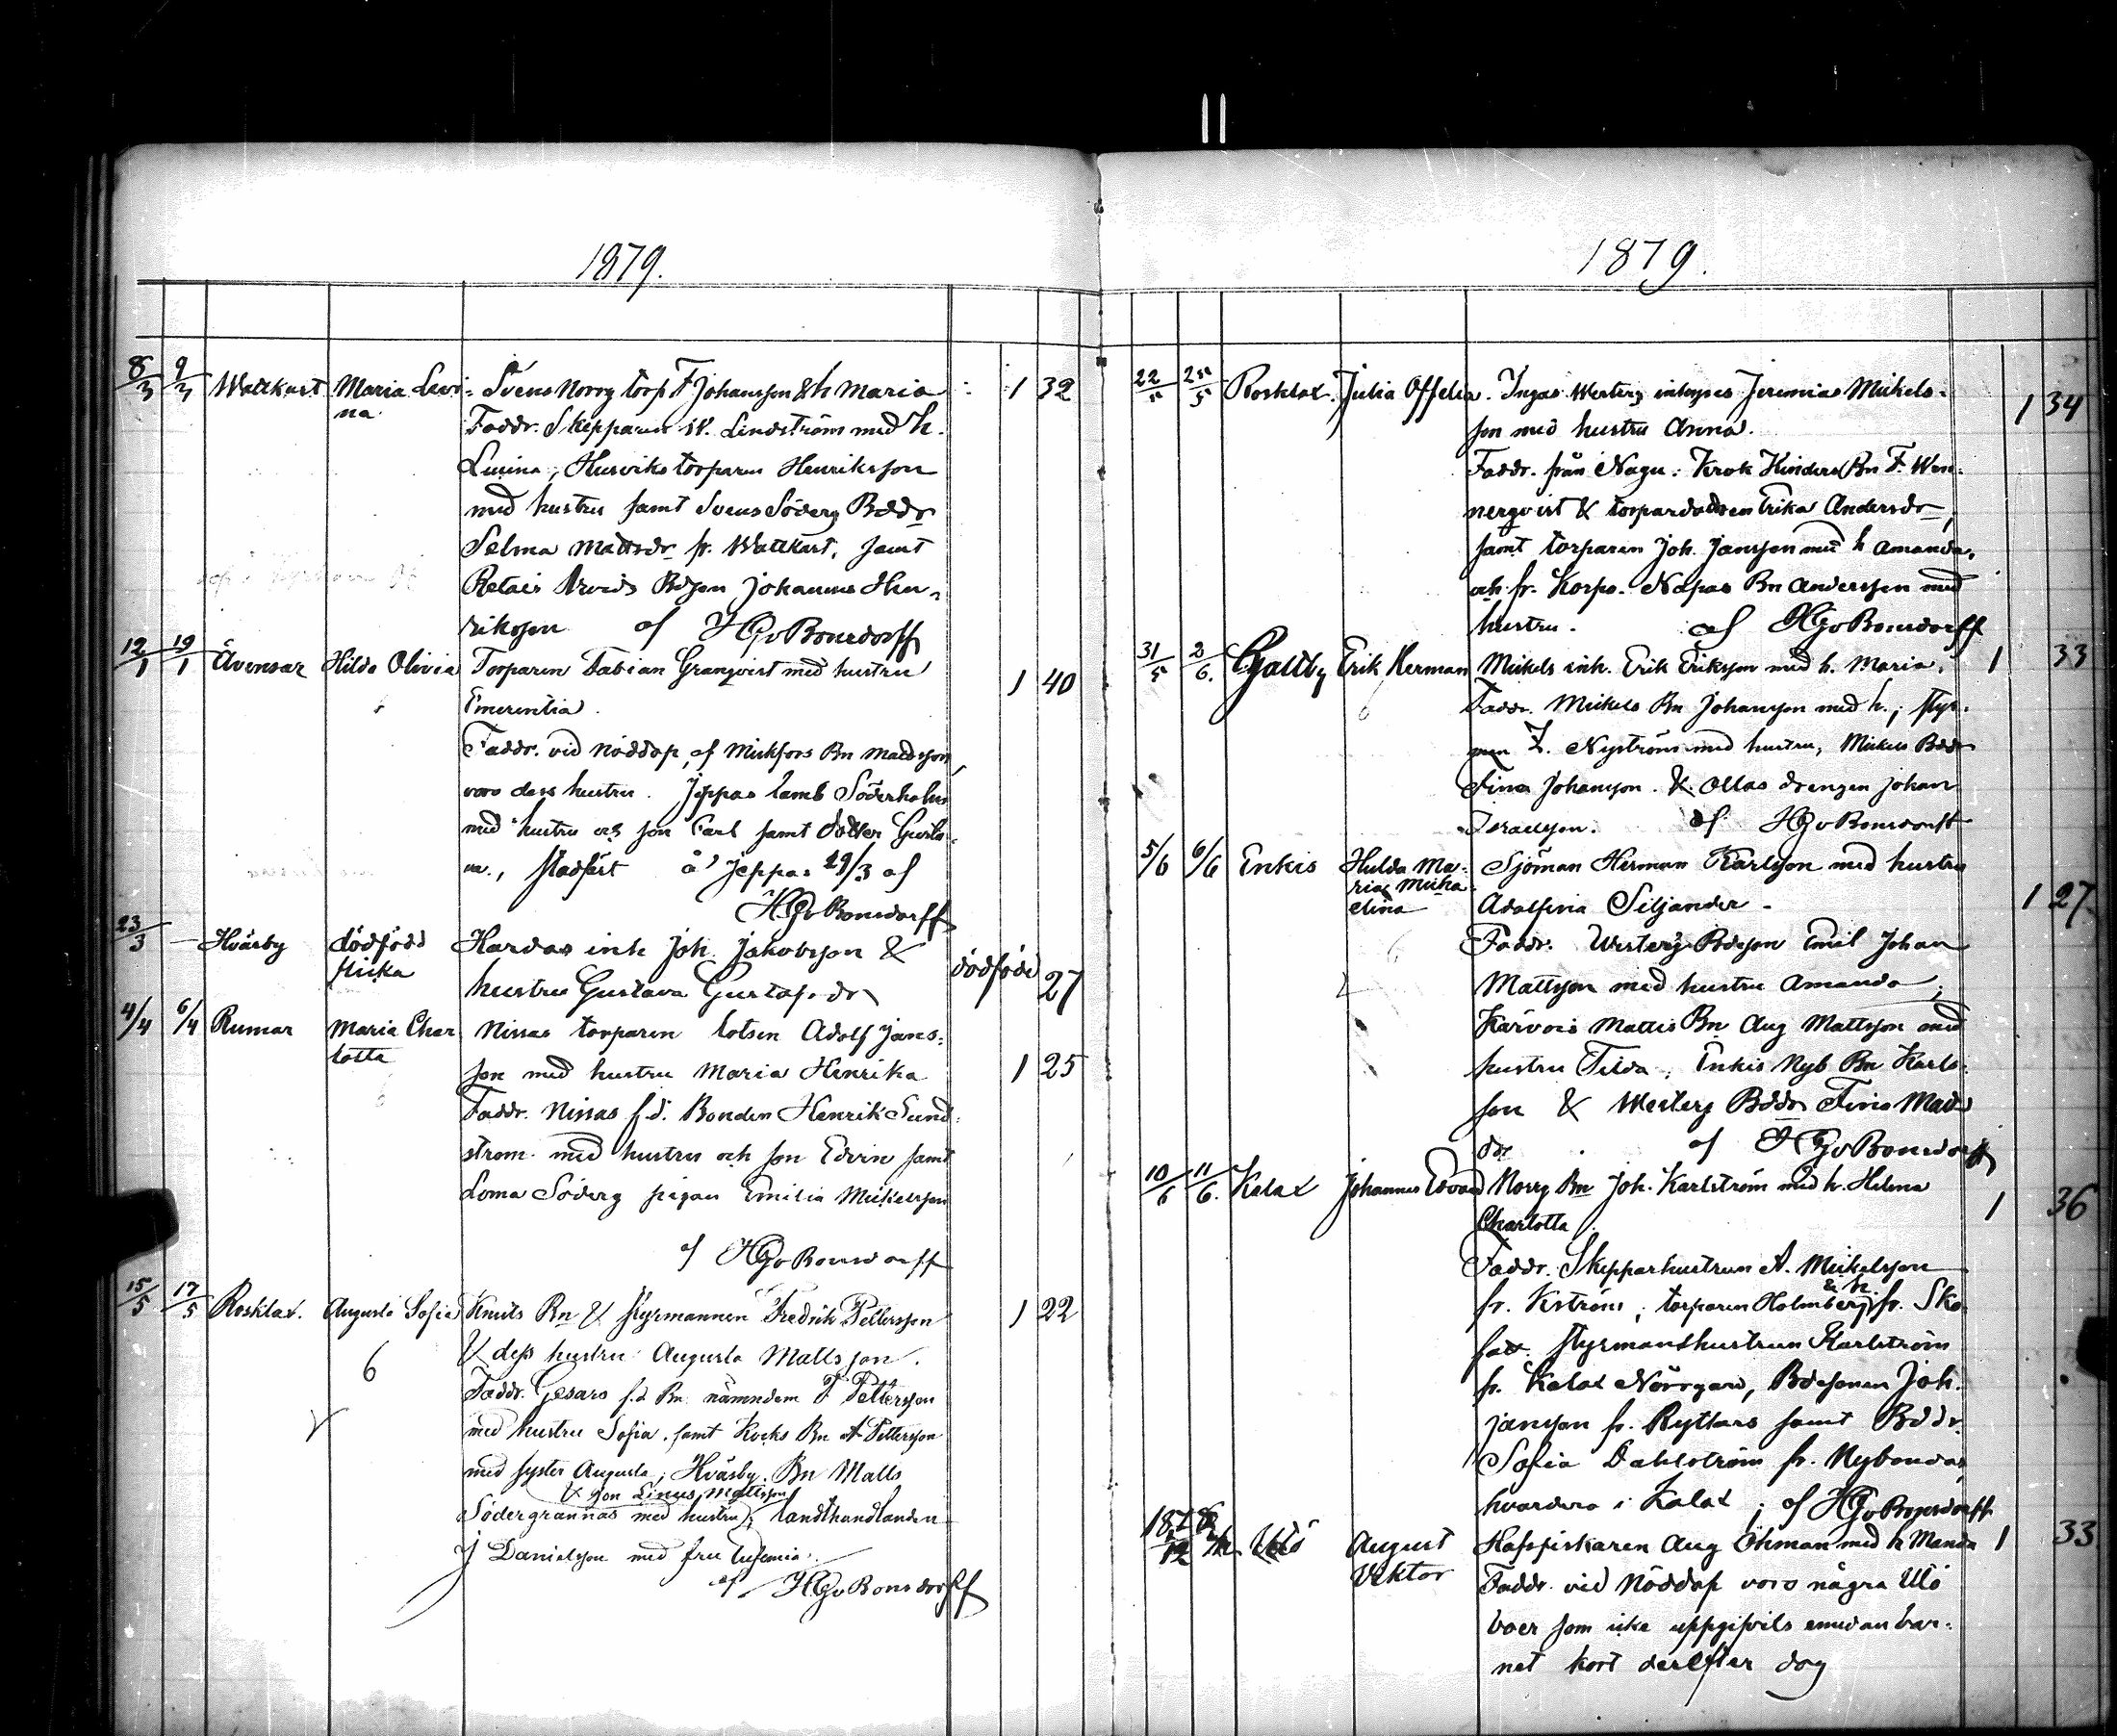 1879.
8/3 9/3 Wattkast Maria Levi- Svens Norrg torp F Johansson & h Maria 1 32
na. Faddr. Skepparen W. Lindström med h.
Lucina, Husviks torparen Henriksson
med hustru samt Svens Söderg Bddr
Selma Mattsdr fr. Wattkast, samt
Retais Arvids Bdson Johannes Hen-
riksson af HGvBonsdorff
12/1 19/1 Åvensar Hilda Olivia Torparen Fabian Granqvist med hustru 1 40
Emerentia.
Faddr. vid nöddop, af Mickfors Bn Madsson,
voro dess hustru. Jeppas Söderholm
med hustru och son Carl samt dotter Gusta-
va, stadfäst å Jeppas 29/3 af
HGvBonsdorff
23/3 — Hväsby dödfödd Hardas inh Joh. Jakobsson & dödfödd 27
flicka hustru Gustava Gustafsdr
4/4 6/4 Rumar Maria Char Nissas torparen lotsen Adolf Jans- 1 25
lotta son med hustru Maria Henrika
Faddr. Nissas f.d. Bonden Henrik Sund-
ström med hustru och son Edvin samt
Loma Söderg pigan Emilia Mickelsson
af HGvBonsdorff
15/5 17/5 Rosklax. Augusta Sofia Knuts Bn & styrmannen Fredrik Pettersson 1 22
6 & dess hustru Augusta Mattsson.
Faddr. Gesars f.d Bn nämndem F Pettersson
med hustru Sofia, samt Kocks Bn A Pettersson
med syster Augusta, Hväsby. Bn Matts
& son Linus Mattsson
Södergrannas med hustru, landthandlanden
J Danielsson med fru Eufemia.
af HGvBonsdorff
1879.
22/5 25/5 Rosklax. Julia Offelia. Ingas Westerg inhyses Jeremias Mickels- 1 34
son med hustru Anna.
Faddr. från Nagu: Krok Kinders Bn F. Wen-
nerqvist & torpardottren Erika Andersdr,
samt torparen Joh. Jansson med h Amanda,
och fr. Korpo. Näpas Bn Andersson med
hustru. af HGvBonsdorff
31/5 2/6. Galtby Erik Herman Mickels inh. Erik Eriksson med h. Maria. 1 33
6 Faddr. Mickels Bn Johansson med h.; styr-
man Z. Nyström med hustru, Mickels Bddr
Fina Johansson. & Ollas drengen Johan
Israelsson. af HGvBonsdorff
5/6 6/6 Enkis Hulda Ma- Sjöman Herman Karlsson med hustru 1 27
ria Mika- Adolfina Siljander.
elina Faddr. Westerg Bdeson Emil Johan
Mattsson med hustru Amanda,
Kärvois Mattis Bn Aug Mattsson med
hustru Tilda. Enkis Nyb Bn Karls-
son & Westerg Bddr Fina Mads
dr af HGvBonsdorff
10/6 11/6. Kalax Johannes Edvard Norrg Bn Joh. Karlström med h. Helena 1 36
Charlotta.
Faddr. Skepparhustrun A. Mickelsson
& h.
fr. Kström; torparen Holmberg, fr. Sko-
fat. styrmanshustrun Karlström
fr. Kalax Norrgård, Bdesonen Joh.
Jansson fr. Ryttars samt Bddr.
Sofia Dahlström fr. Nybondas
hvardera i Kalax; af HGvBonsdorff
1878
Utö August Hafsfiskaren Aug Öhman med h Manda 1 33
Viktor Faddr. vid Nöddop voro några Utö
boer som icke uppgifvits emedan bar-
net kort derefter dog